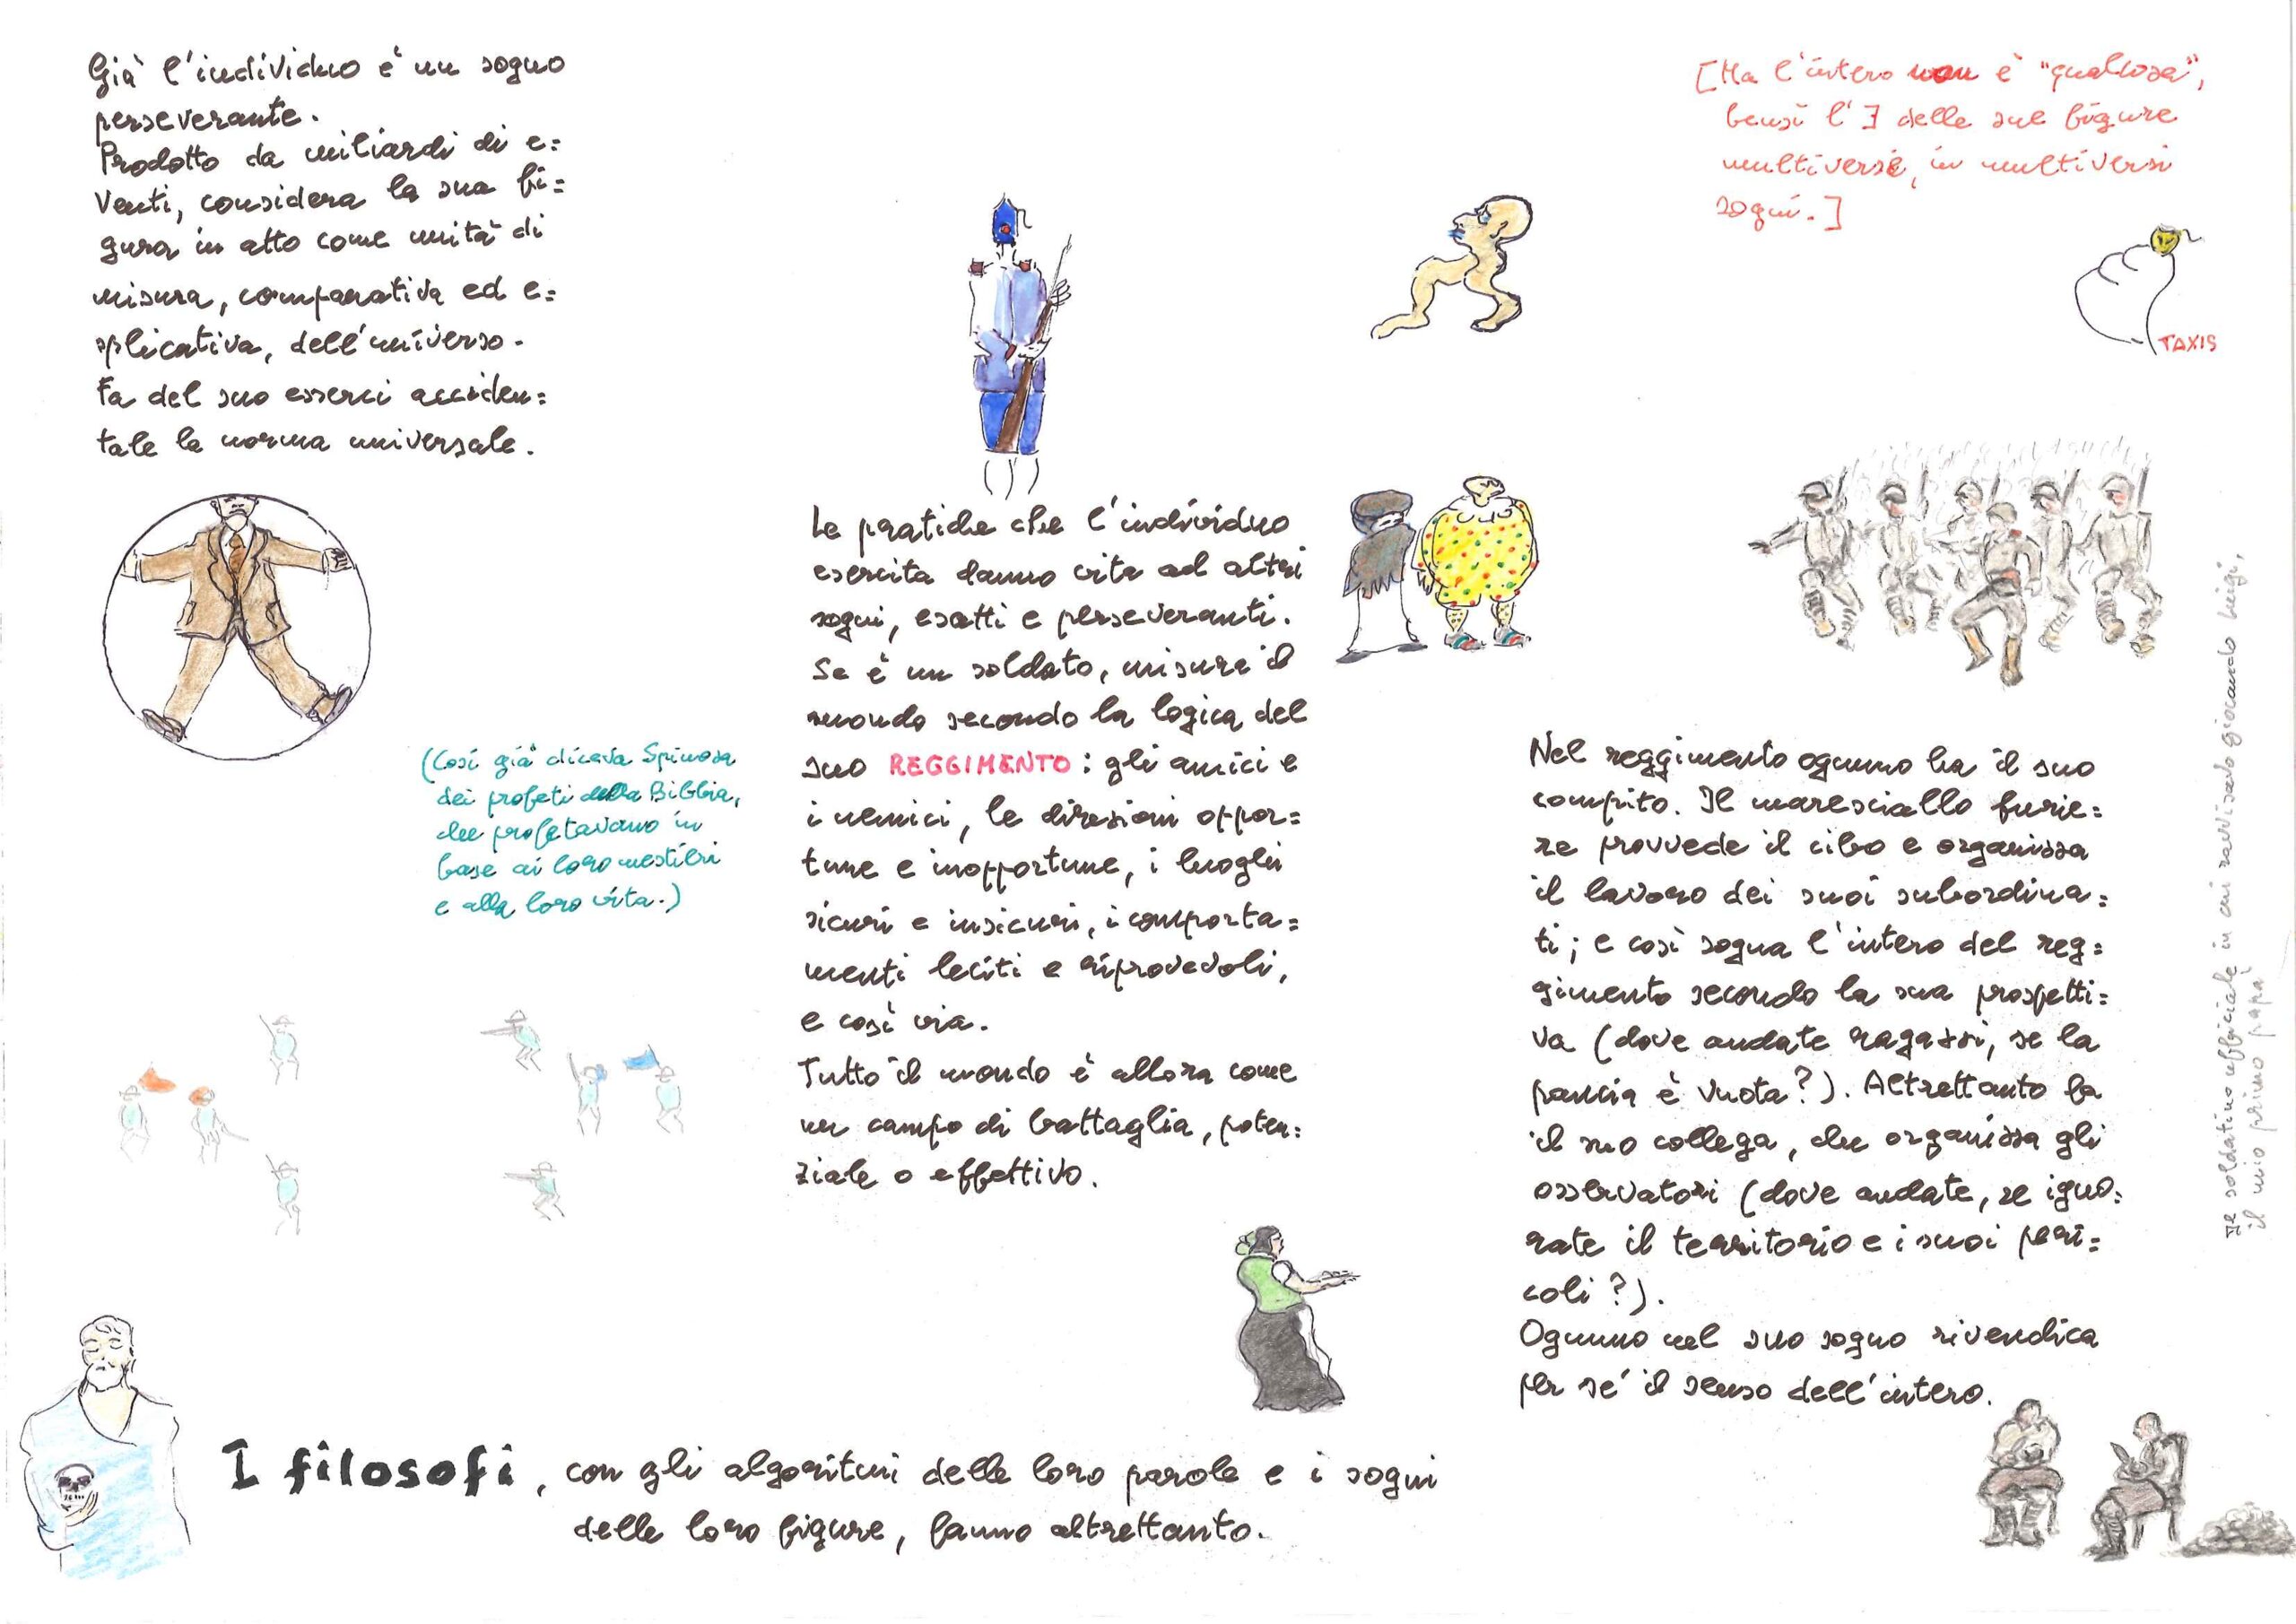 Già l'individuo è un sogno
perseverante.
Prodotto da miliardi di e=
venti, considera la sua fi=
gura in atto come unità di
misura, comparativa ed e=
splicativa, dell'universo.
Fa del suo esserci acciden=
tale la norma universale.
(Così già diceva Spinoza
dei profeti della Bibbia,
che profetavano in
base ai loro mestieri
e alla loro vita.)
Le pratiche che l'individuo
esercita danno vita ad altri
sogni, esatti e perseveranti.
Se è un soldato, misura il
mondo secondo la logica del
suo REGGIMENTO: gli amici e
i nemici, le direzioni oppor=
tune e inopportune, i luoghi
sicuri e insicuri, i comporta=
menti leciti e riprovevoli,
e così via.
Tutto il mondo è allora come
un campo di battaglia, poten=
ziale o effettivo.
[Ma l'intero non è "qualcosa",
bensì l'∃ delle sue figure
multiverse, in multiversi
sogni.]
TAXIS
Nel reggimento ognuno ha il suo
compito. Il maresciallo furie=
re provvede il cibo e organizza
il lavoro dei suoi subordina=
ti; e così sogna l'intero del reg=
gimento secondo la sua prospetti=
va (dove andate ragazzi, se la
pancia è vuota?). Altrettanto fa
il suo collega, che organizza gli
osservatori (dove andate, se igno=
rate il territorio e i suoi peri=
coli?).
Ognuno nel suo sogno rivendica
per sé il senso dell'intero.
Il soldatino ufficiale in cui ravvisavo giocando Luigi,
il mio primo papà
I filosofi, con gli algoritmi delle loro parole e i sogni
delle loro figure, fanno altrettanto.